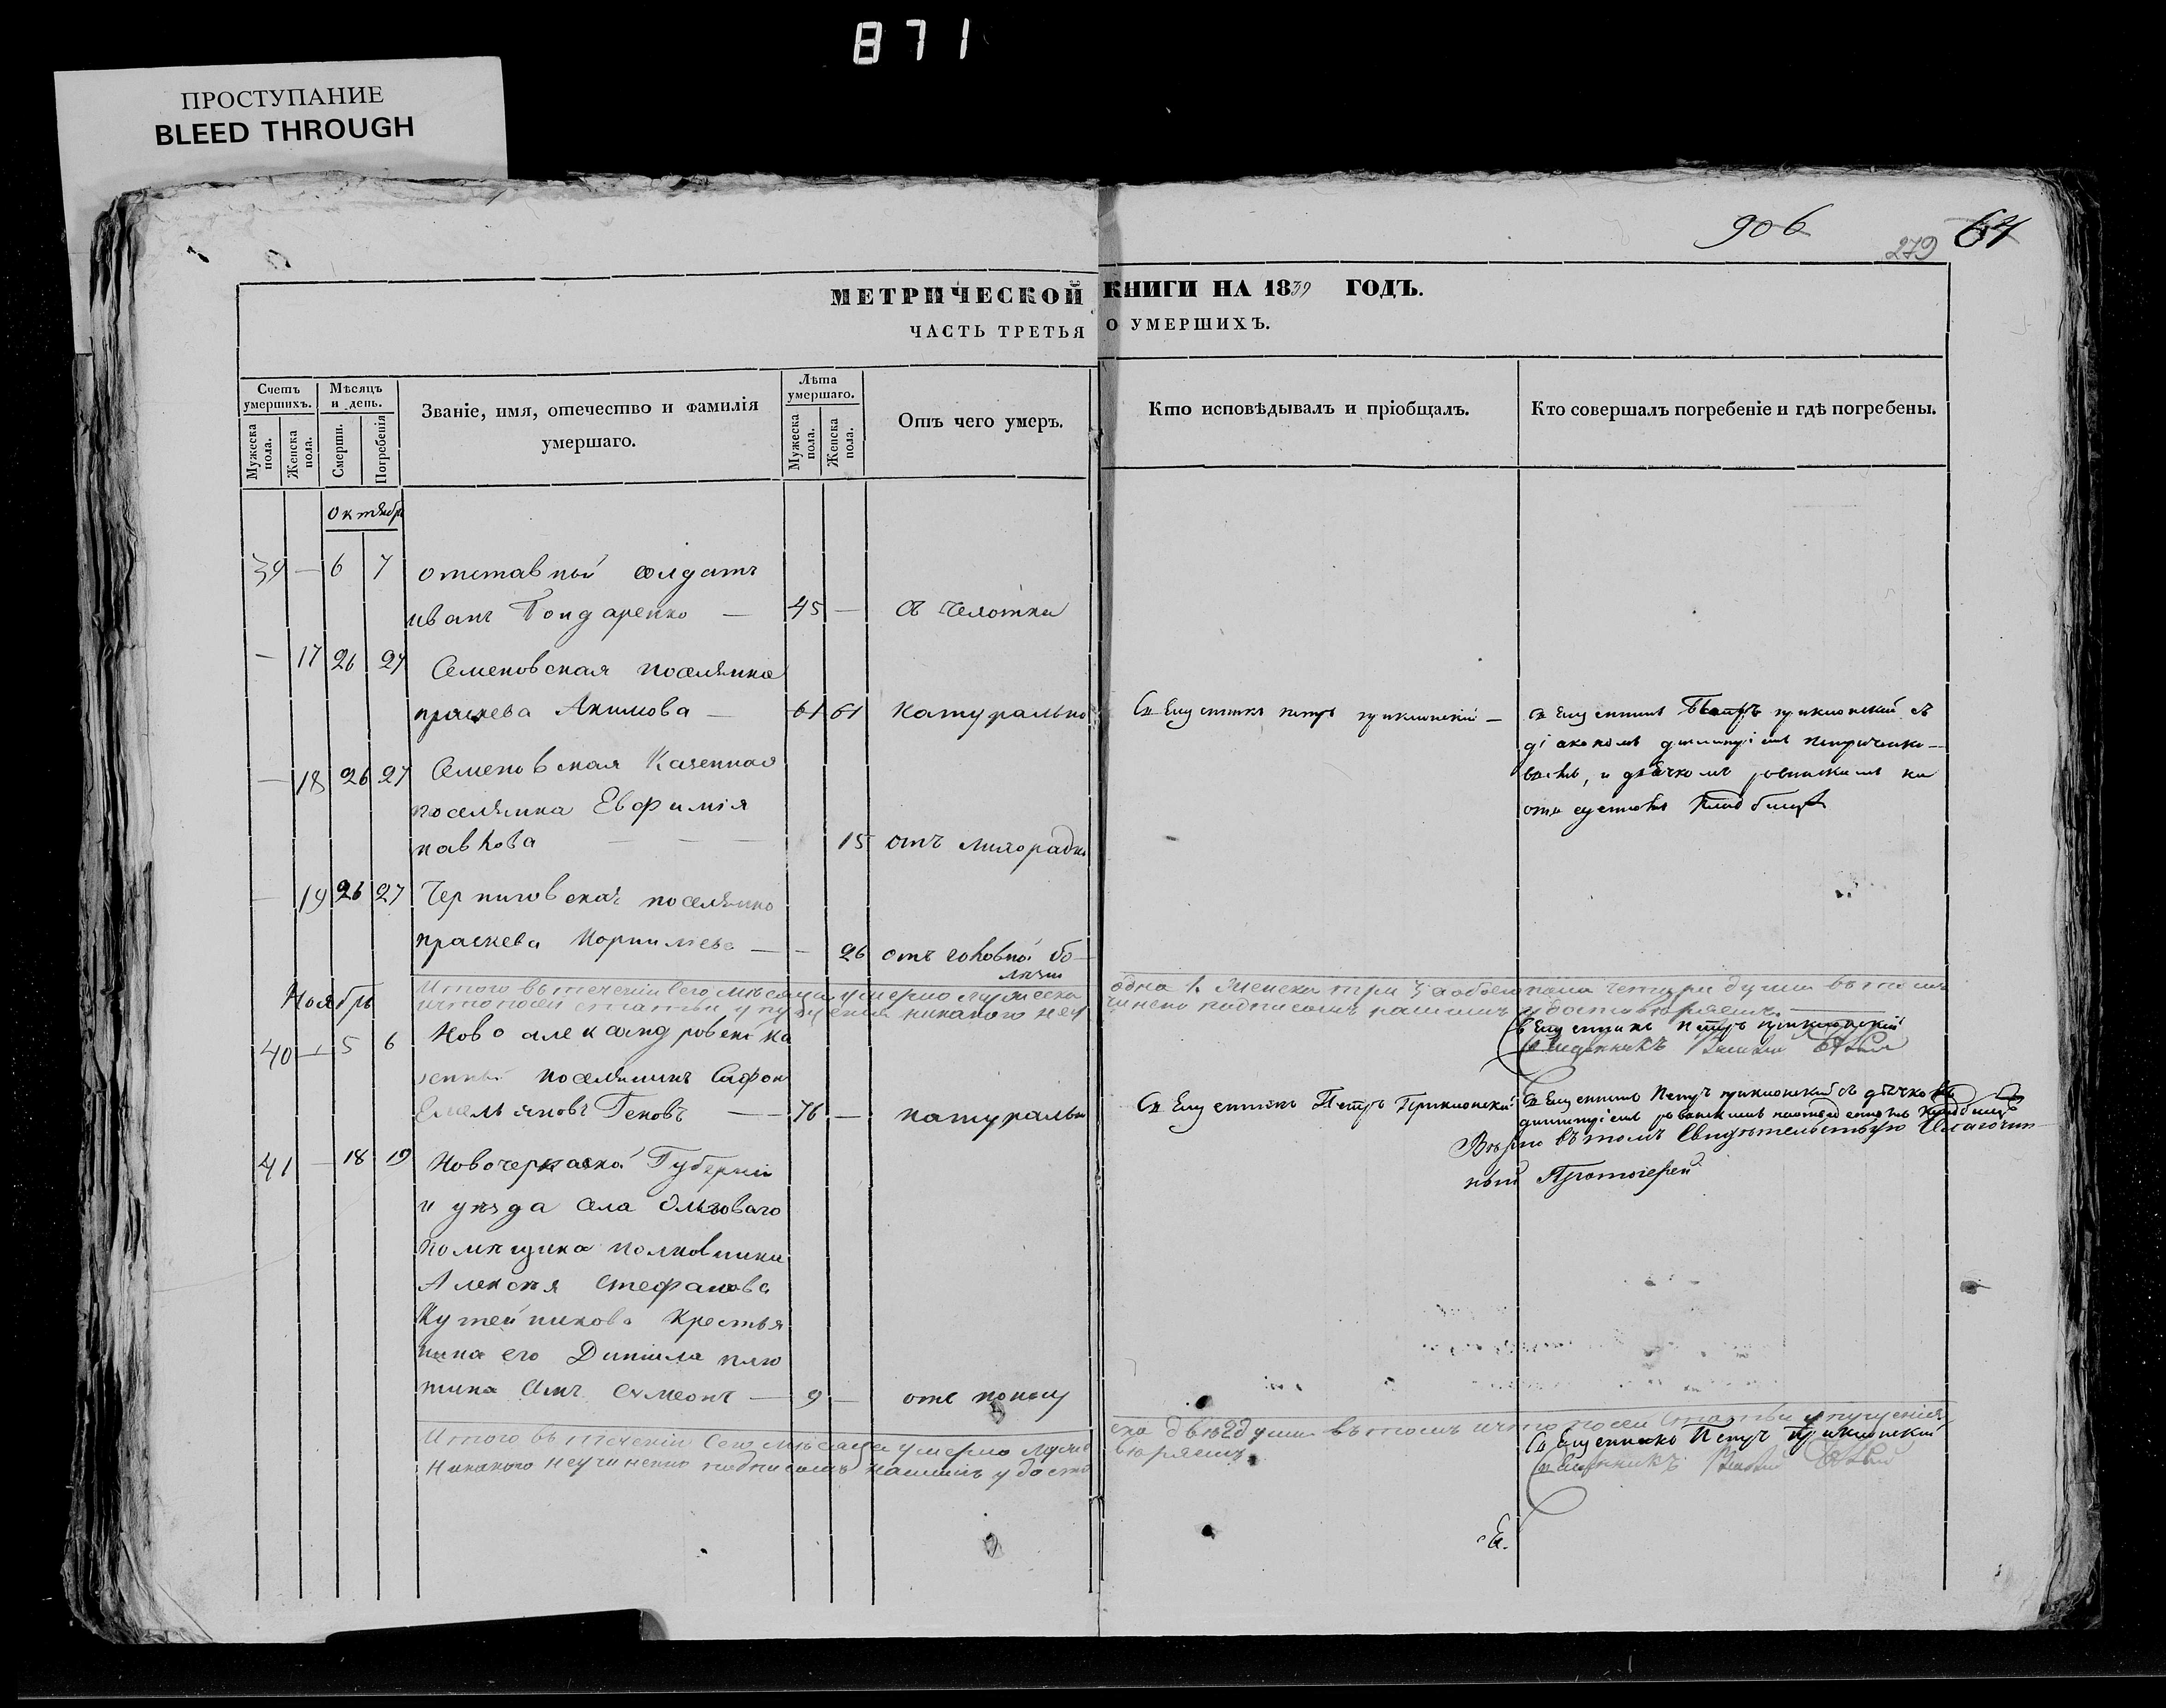 871
ПРОСТУПАНИЕ
BLEED THROUGH
906
279
64
МЕТРИЧЕСКОЙ КНИГИ НА 1839 ГОДЪ.
ЧАСТЬ ТРЕТЬЯ О УМЕРШИХЪ.
Счетъ умершихъ.
Мужеска пола.
Женска пола.
Мѣсяцъ и день.
Смерти.
Погребенія
Званіе, имя, отечество и фамилія умершаго.
Лѣта умершаго.
Мужеска пола.
Женска пола.
Отъ чего умеръ.
Кто исповѣдывалъ и пріобщалъ.
Кто совершалъ погребеніе и гдѣ погребены.
Октябрь
39 — 6 7 отставный солдатъ
иванъ Бондаренко — 45 —
— 17 26 27 Семеновская поселянка
праскева Акимова — 61 61 натурально
Священникъ петръ —
Священникъ Петръ съ
діакономъ
и дьячкомъ на
кладбищѣ
— 18 26 27 Семеновская Казенная
поселянка Евфимія
павлова — — — 15 отъ лихорадки
— 19 26 27 Черниговская поселянка
праскева Корнилiева — — 26 отъ головной бо-
лезни
Итого въ теченіи сего мѣсяца умерло мужеска одна 1. Женска три 3 а обоего пола четыри души въ томъ
и что после статьи упущенія никакого неучинено подписомъ нашимъ удостовѣряемъ.
Священникъ Петръ
Священникъ
Ноябрь
40 — 5 6 Ново александровски ка
зенный поселянинъ Сафон
Емельяновъ Геновъ — 76 — натурально
Священникъ Петръ
Священникъ Петръ съ дьячкомъ
кладбищѣ
Вѣрно въ томъ Свидѣтельствую Благочин-
ный Протоіерей
41 — 18 19 Новочеркаской Губерніи
и уѣзда села Ольховаго
помѣщика полковника
Алексѣя Стефанова
Кутейникова Крестья
нина его Данiила плю
тина сынъ Сѵмеонъ — 9 — отъ поносу
Итого въ теченіи сего мѣсяца умерло мужеска двѣ 2 души въ томъ и что после статьи упущенія
Никакого неучиненно подписомъ нашимъ удостовѣряемъ.
Священникъ Петръ
Священникъ